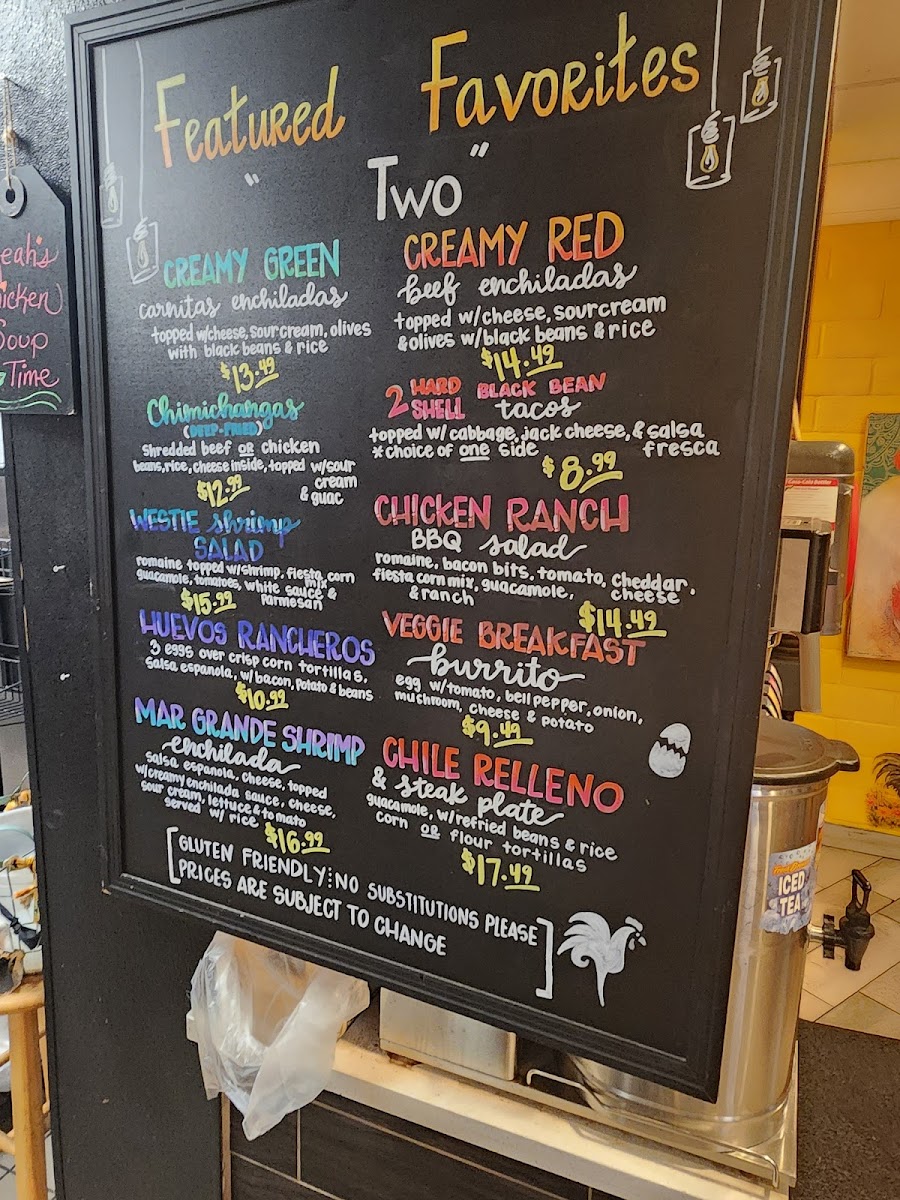 Featured Favorites
"Two"
CREAMY GREEN
carnitas enchiladas
topped w/cheese, sour cream, olives
with black beans & rice
$13.49
Chimichangas
(DEEP-FRIED)
Shredded beef OR chicken
beans, rice, cheese inside, topped w/sour
cream
& guac
$12.99
WESTIE shrimp
SALAD
romaine topped w/shrimp, fiesta corn
mix,
guacamole, tomatoes, white sauce &
parmesan
$15.99
HUEVOS RANCHEROS
3 eggs over crisp corn tortillas,
salsa espanola, w/bacon, potato & beans
$10.99
MAR GRANDE SHRIMP
enchilada
salsa espanola, cheese, topped
w/creamy enchilada sauce, cheese,
sour cream, lettuce & tomato
served w/ rice
$16.99
CREAMY RED
beef enchiladas
topped w/cheese, sourcream
& olives w/black beans & rice
$14.49
2 HARD SHELL BLACK BEAN
tacos
topped w/ cabbage, jack cheese, & salsa
fresca
*choice of one side
$8.99
CHICKEN RANCH
BBQ salad
romaine, bacon bits, tomato, cheddar
cheese,
fiesta corn mix, guacamole,
& ranch
$14.49
VEGGIE BREAKFAST
burrito
egg w/tomato, bell pepper, onion,
mushroom, cheese & potato
$9.49
CHILE RELLENO
& steak plate
guacamole, w/refried beans & rice
corn OR flour tortillas
$17.49
[GLUTEN FRIENDLY⋮NO SUBSTITUTIONS PLEASE
PRICES ARE SUBJECT TO CHANGE]
Soup
Time
ICED
TEA